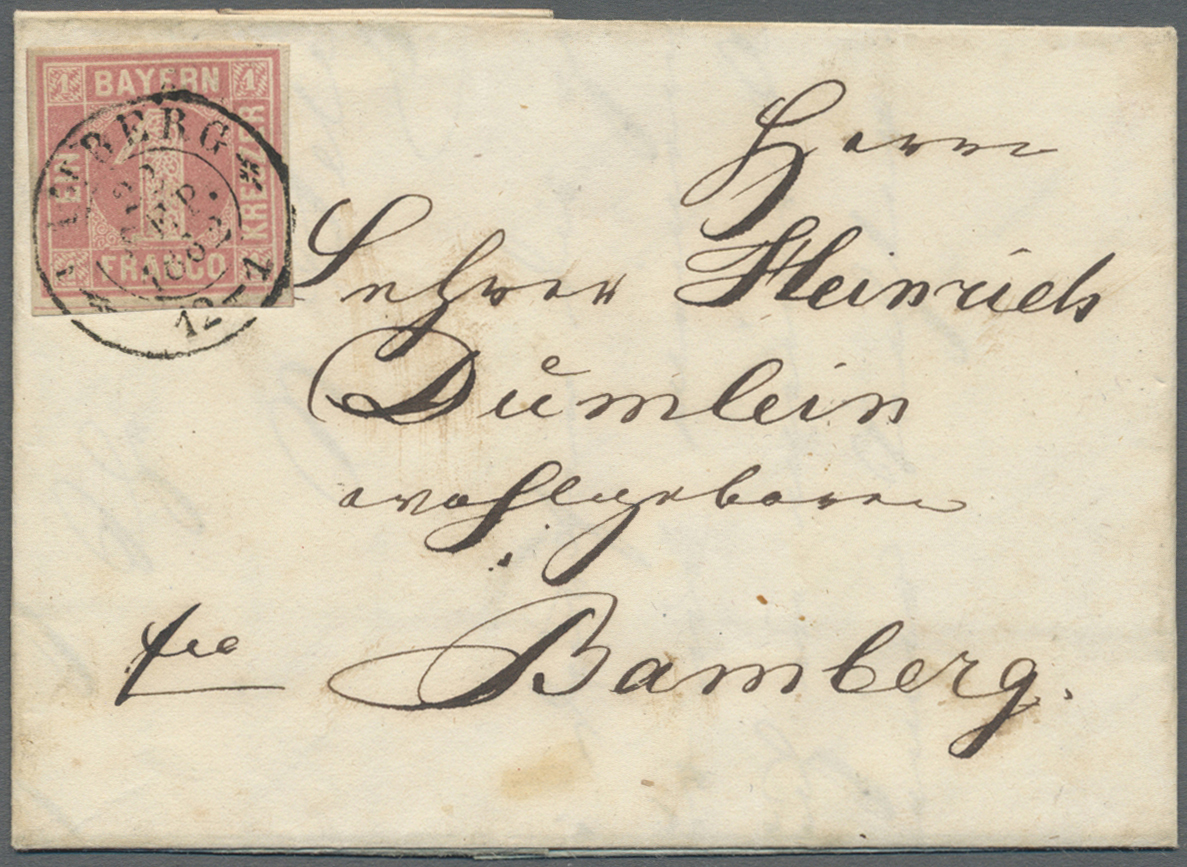 1 BAYERN 1
EIN
1
KREUZER
FRANCO
BERG
SEP.
1862
12-1
Herrn
Lehrer Heinrich
Dümlein
wohlgeboren
fco Bamberg.